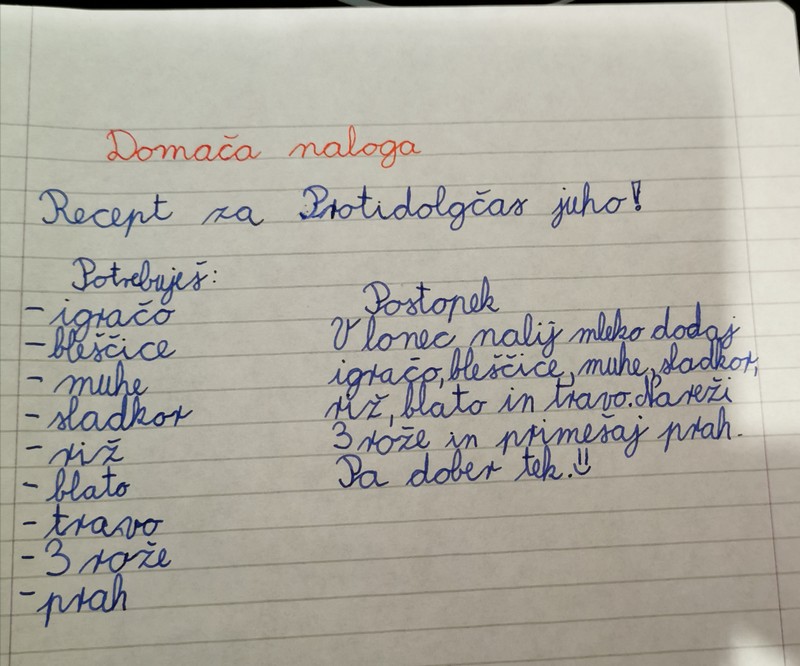 Domača naloga
Recept za Protidolgčas juho!
Potrebuješ:
- igračo
- bleščice
- muhe
- sladkor
- riž
- blato
- travo
- 3 rože
- prah
Postopek
V lonec nalij mleko dodaj
igračo, bleščice, muhe, sladkor,
riž, blato in travo. Nareži
3 rože in primešaj prah.
Pa dober tek.